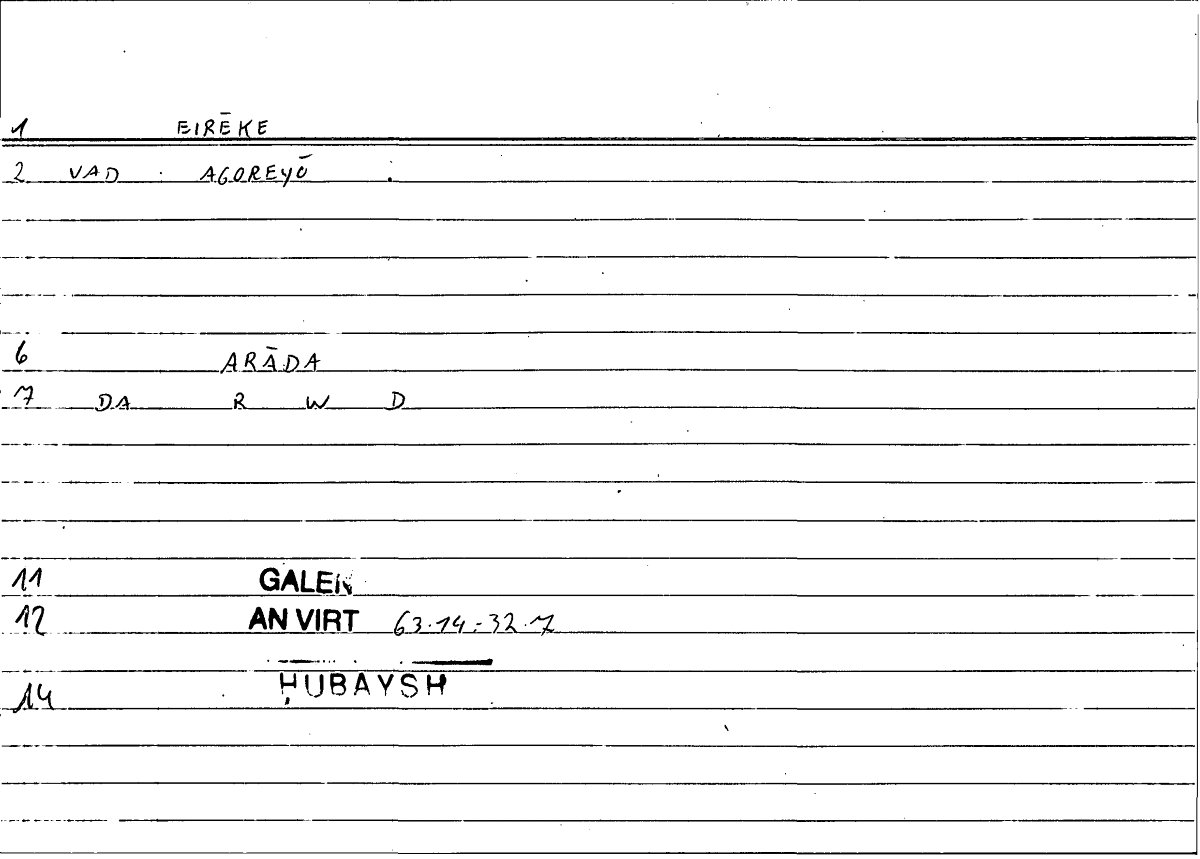 1 EIRĒKE
2 VAD · AGOREYŌ .
6 ARĀDA
7 DA R W D
11 GALEN
12 AN VIRT 63.14.-32.7
14 ḤUBAYSH